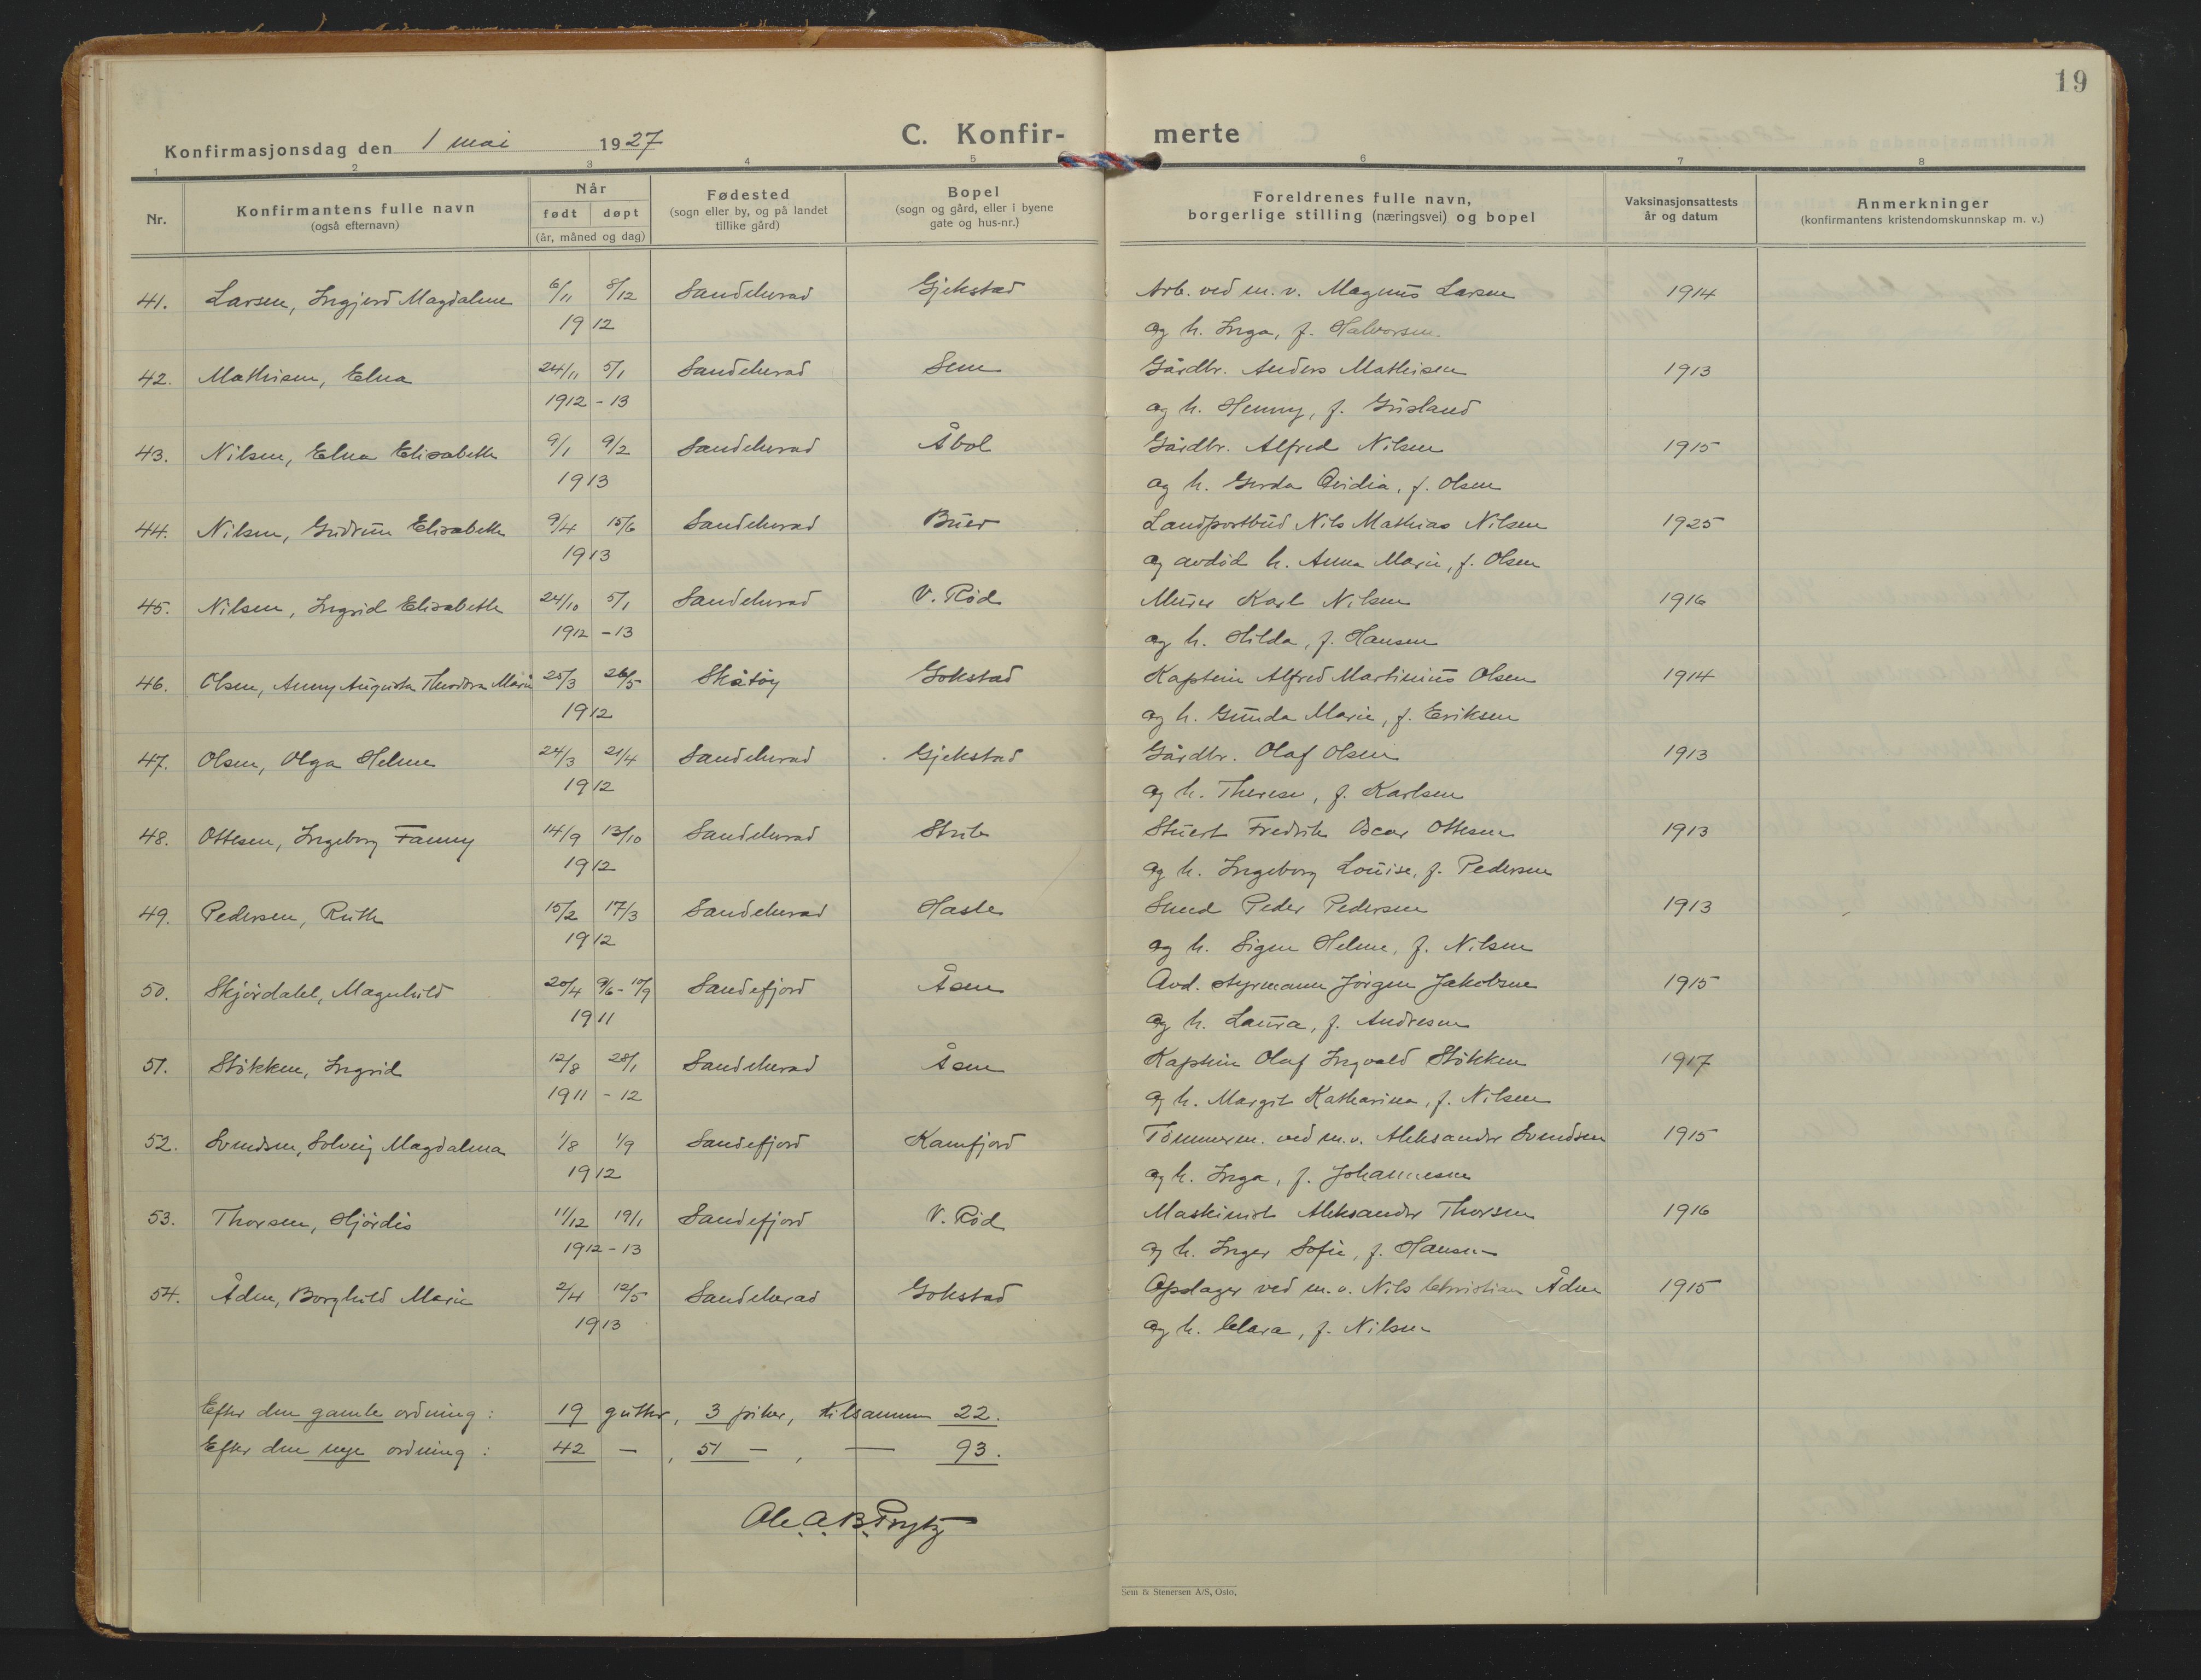 19
Konfirmasjonsdag den 1 mai 1927
C. Konfir- merte
1 2 3 4 5 6 7 8
Nr.
Konfirmantens fulle navn
(også efternavn)
Når
født døpt
(år, måned og dag)
Fødested
(sogn eller by, og på landet
tillike gård)
Bopel
(sogn og gård, eller i byene
gate og hus-nr.)
Foreldrenes fulle navn,
borgerlige stilling (næringsvei) og bopel
Vaksinasjonsattests
år og datum
Anmerkninger
(konfirmantens kristendomskunnskap m. v.)
41. Larsen, Ingjerd Magdalene 6/11 8/12 Sandeherad Gjekstad Arb. ved m. v. Magnus Larsen 1914
1912 og h. Inga, f. Halvorsen
42. Mathisen, Elna 24/11 5/1 Sandeherad Sem Gårdbr. Anders Mathisen 1913
1912 - 13 og h. Henny, f. Gusland
43. Nilsen, Elna Elisabeth 9/1 9/2 Sandeherad Åbol Gårdbr. Alfred Nilsen 1915
1913 og h. Gerda Ovidia, f. Olsen
44. Nilsen, Gudrun Elisabeth 9/4 15/6 Sandeherad Buer Landpostbud Nils Mathias Nilsen 1925
1913 og avdød h. Anna Marie, f. Olsen
45. Nilsen, Ingrid Elisabeth 24/10 5/1 Sandeherad V. Rød Murer Karl Nilsen 1916
1912 - 13 og h. Hilda, f. Hansen
46. Olsen, Anny Augusta Theodora Marie 25/3 26/5 Skåtøy Gokstad Kaptein Alfred Martinius Olsen 1914
1912 og h. Gunda Marie, f. Eriksen
47. Olsen, Olga Helene 24/3 21/4 Sandeherad Gjekstad Gårdbr. Olaf Olsen 1913
1912 og h. Therese, f. Karlsen
48. Ottesen, Ingeborg Fanny 14/9 13/10 Sandeherad Strib Stuert Fredrik Oscar Ottesen 1913
1912 og h. Ingeborg Louise, f. Pedersen
49. Pedersen, Ruth 15/2 17/3 Sandeherad Hasle Smed Peder Pedersen 1913
1912 og h. Signe Helene, f. Nilsen
50. Skjørdahl, Magnhild 20/4 9/6 - 10/9 Sandefjord Åsen Avd. styrmann Jørgen Jakobsen 1915
1911 og h. Laura, f. Andresen
51. Støkken, Ingrid 12/8 28/1 Sandeherad Åsen Kaptein Olaf Ingvald Støkken 1917
1911 - 12 og h. Margit Katharina, f. Nilsen
52. Svendsen, Solveig Magdalena 1/8 1/9 Sandefjord Kamfjord Tømmerm. ved m. v. Aleksander Svendsen 1915
1912 og h. Inga, f. Johannesen
53. Thorsen, Hjørdis 11/12 19/1 Sandefjord V. Rød Maskinist Aleksander Thorsen 1916
1912 - 13 og h. Inger Sofie, f. Hansen
54. Ådne, Borghild Marie 2/4 12/5 Sandeherad Gokstad Opslager ved m. v. Nils Christian Ådne 1915
1913 og h. Clara, f. Nilsen
Efter den gamle ordning: 19 gutter, 3 piker, tilsammen 22.
Efter den nye ordning: 42 — , 51 — , — 93.
Ole A. B. Prytz
Sem & Stenersen A/S, Oslo.